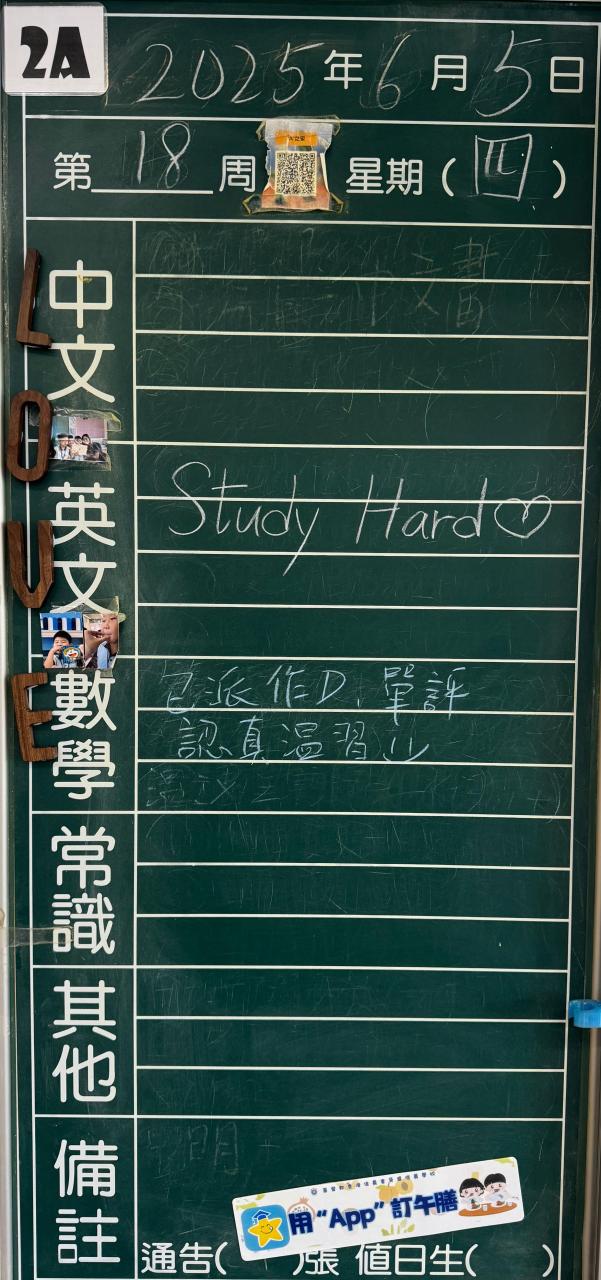 2A
2025年6月5日
第18周 星期(四)
LOVE
中文
英文
Study Hard♡
數學
已派作D, 單評
認真溫習
常識
其他
備註
用“App”訂午膳
通告( )張 值日生( )